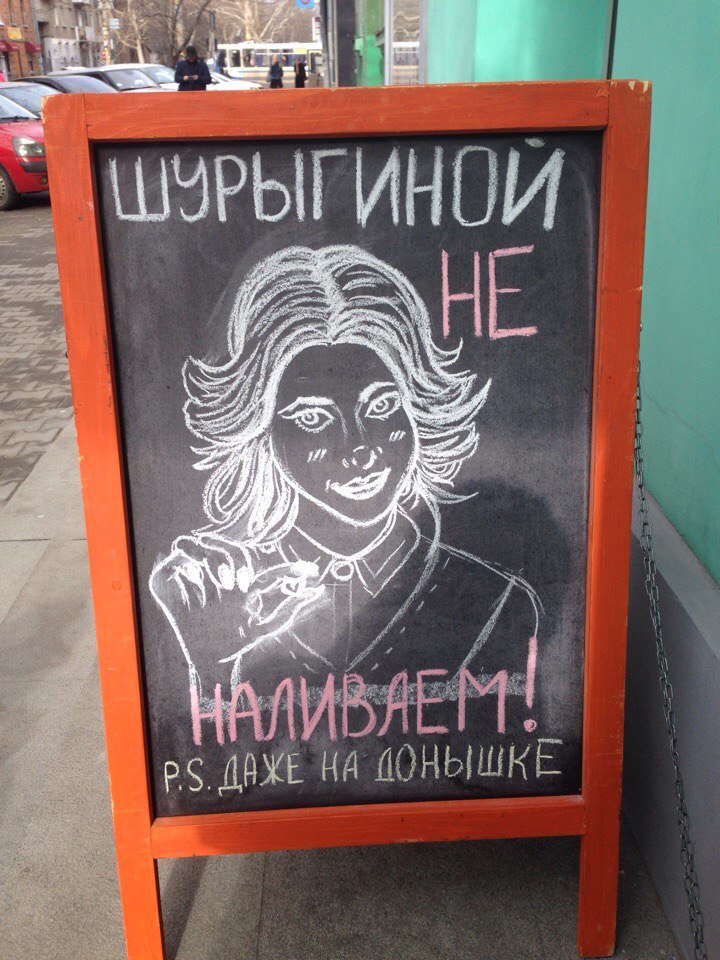 ШУРЫГИНОЙ
НЕ
НАЛИВАЕМ!
P.S. ДАЖЕ НА ДОНЫШКЕ